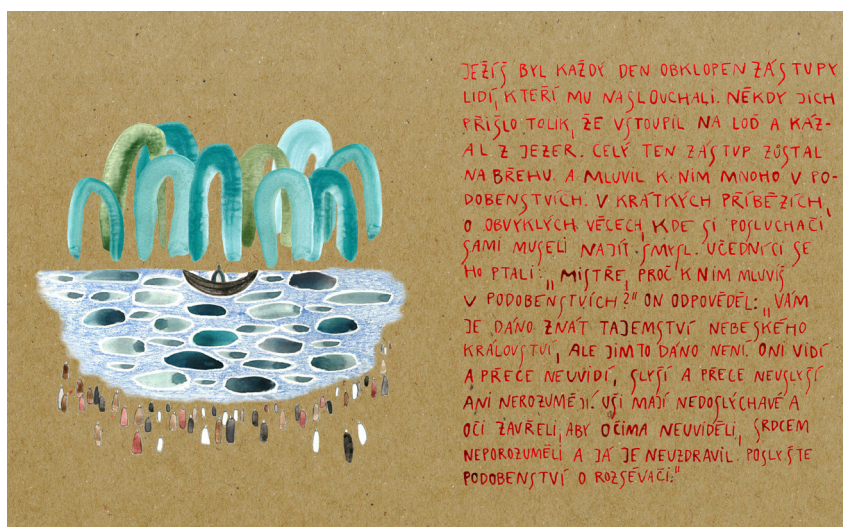 JEŽÍŠ BYL KAŽDÝ DEN OBKLOPEN ZÁSTUPY
LIDÍ, KTEŘÍ MU NASLOUCHALI. NĚKDY JICH
PŘIŠLO TOLIK, ŽE VSTOUPIL NA LOĎ A KÁZ-
AL Z JEZER. CELÝ TEN ZÁSTUP ZŮSTAL
NA BŘEHU. A MLUVIL K NIM MNOHO V PO-
DOBENSTVÍCH. V KRÁTKÝCH PŘÍBĚZÍCH,
O OBVYKLÝCH VĚCECH, KDE SI POSLUCHAČI
SAMI MUSELI NAJÍT SMYSL. UČEDNÍCI SE
HO PTALI: „MISTŘE, PROČ K NIM MLUVÍŠ
V PODOBENSTVÍCH?" ON ODPOVĚDĚL: „VÁM
JE DÁNO ZNÁT TAJEMSTVÍ NEBESKÉHO
KRÁLOVSTVÍ, ALE JIM TO DÁNO NENÍ. ONI VIDÍ
A PŘECE NEUVIDÍ, SLYŠÍ A PŘECE NEUSLYŠÍ
ANI NEROZUMĚJÍ. UŠI MAJÍ NEDOSLÝCHAVÉ A
OČI ZAVŘELI, ABY OČIMA NEUVIDĚLI, SRDCEM
NEPOROZUMĚLI A JÁ JE NEUZDRAVIL. POSLYŠTE
PODOBENSTVÍ O ROZSÉVAČI."